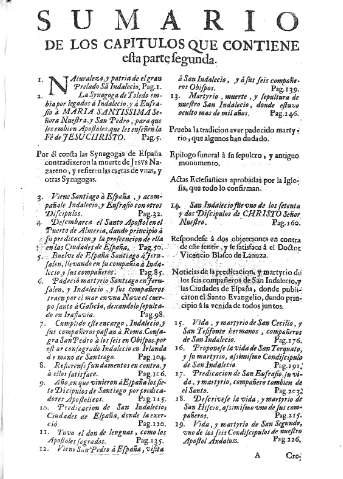 SUMARIO
DE LOS CAPITULOS QUE CONTIENE
esta parte segunda.
1. Naturaleza, y patria de el gran
Prelado Sã Indalecio, Pag. 1.
2. La Synagoga de Toledo embia por legados à Indalecio, y à Eufrasio
à MARIA SANTISSIMA Señora
Nuestra, y San Pedro, para que
les embien Apostoles, que les enseñen la
Fè de JESUCHRISTO. Pag. 5.
Por si consta las Synagogas de España
contradixeron la muerte de Jesus Nazareno,
y refieren las cartas de unas, y
otras Synagogas.
3. Viene Santiago à España, y acompañanle
Indalecio, y Eufrasio con otros
Discipulos. Pag. 32.
4. Desembarca el Santo Apostol en el
Puerto de Almeria, dando principio à
su predicacion
en las Ciudades de España. Pag. 50.
5. Buelve de España Santiago à Jerusalen,
llevando en su compañia à Indalecio,
y sus compañeros. Pag. 85.
6. Padeciò martyrio Santiago en Jerusalen,
y Indalecio, y sus compañeros
traen por el mar en una Nave el cuerpo
santo à Galicia, dexandole sepultado
en Iriaflavia. Pag. 98.
7. Cumplido este encargo, Indalecio, y
sus compañeros passan à Roma. Consagra
San Pedro à los seis en Obispos, por
estar contagrado Indalecio en Irlanda
de mano de Santiago. Pag. 104.
8. Refierense fundamentos en contra, y
à ellos satisfacese. Pag. 116.
9. Año, en que vinieron à España los siete
Discipulos de Santiago por predicadores
Apostolicos. Pag. 115.
10. Predicacion de San Indalecio
Ciudades de España, donde la exerciò
Pag. 120.
11. Tuvo el don de lenguas, como los
Apostoles sagrados. Pag. 135.
12. Viene San Pedro à España, visita
à San Indalecio, y à sus seis compañeros
Obispos. Pag. 139.
13. Martyrio, muerte, y sepultura de
nuestro San Indalecio, donde estuvo
oculto mas de mil años. Pag. 146.
Prueba la tradicion aver padecido martyrio,
que algunos han dudado.
Epilogo funeral à su sepulcro, y antiguo
monumento.
Actas Eclesiasticas aprobadas por la Iglesia,
que todo lo confirman.
14. San Indalecio fue vno de los setenta
y dos Discipulos de CHRISTO Señor
Nuestro. Pag. 160.
Respondese à dos objecciones en contra
de este sentir, y se satisface à el Doctor
Vicencio Blasco de Lanuza.
Noticias de la predicacion, y martyrio de
los seis compañeros de San Indalecio, y
las Ciudades de España, donde publicaron
el Santo Evangelio, dando principio
à la venida de todos juntos.
15. Vida, y martyrio de San Cecilio, y
San Tesifonte hermanos, compañeros
de San Indalecio. Pag. 176.
16. Proponese la vida de San Torcuato,
y su martyrio, assimismo Condiscipulo
de San Indalecio. Pag. 191.
17. Predicacion de San Eufrasio, su vida,
y martyrio, compañero tambien de
el Santo. Pag. 203.
18. Descrivese la vida, y martyrio de
San Hiscio, assimismo vno de sus compañeros.
Pag. 215.
19. Vida, y martyrio de San Segundo,
vno de los seis Condiscipulos de nuestro
Apostol Andaluz. Pag. 226.
A Cro-